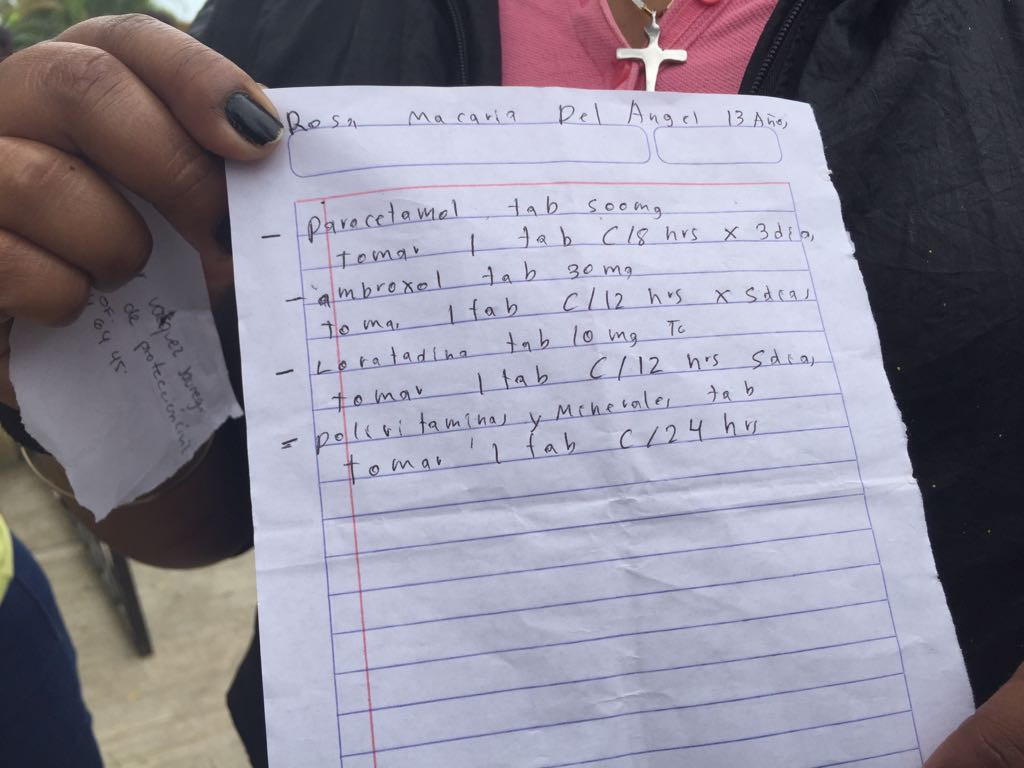 Rosa Macaria Del Angel 13 Años
- Paracetamol tab 500mg
tomar 1 tab C/8 hrs x 3dia,
- ambroxol tab 30 mg
toma, 1 tab C/12 hrs x 5dia,
- Loratadina tab 10 mg Tc
tomar 1 tab C/12 hrs 5dia,
= polivitaminas y Minerales tab
tomar 1 tab C/24 hrs
de protección
64 45